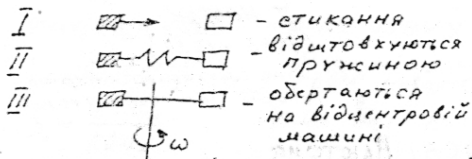 I - стикання
II - відштовхуються
пружиною
III - обертаються
на відцентровій
машині
ω